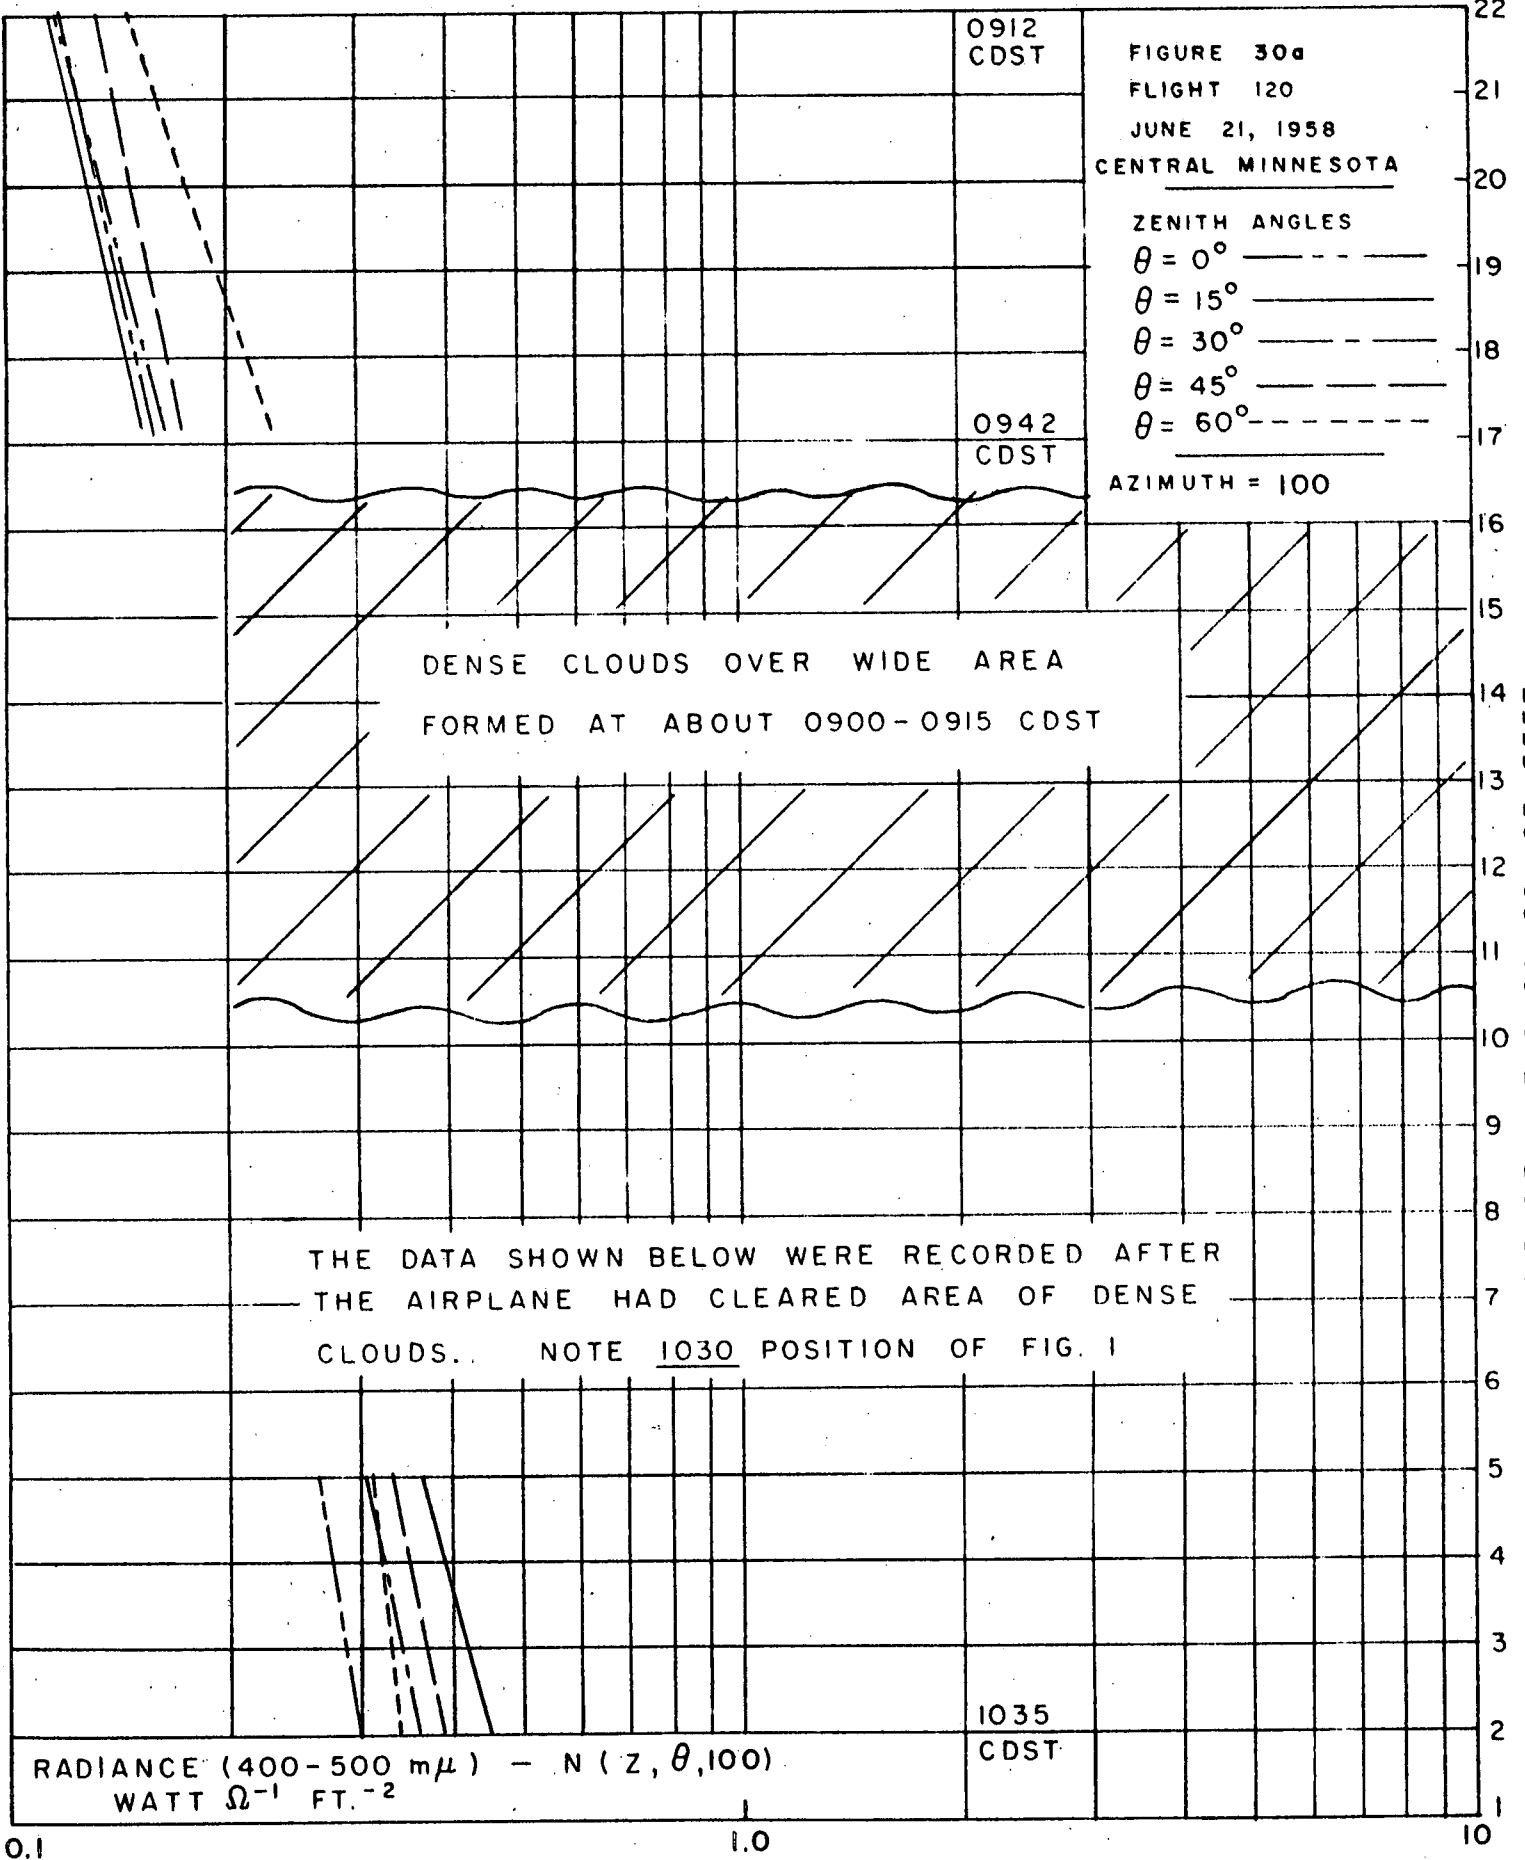 0912
CDST
FIGURE 30a
FLIGHT 120
JUNE 21, 1958
CENTRAL MINNESOTA
ZENITH ANGLES
θ = 0°
θ = 15°
θ = 30°
θ = 45°
θ = 60°
AZIMUTH = 100
0942
CDST
DENSE CLOUDS OVER WIDE AREA
FORMED AT ABOUT 0900-0915 CDST
THE DATA SHOWN BELOW WERE RECORDED AFTER
THE AIRPLANE HAD CLEARED AREA OF DENSE
CLOUDS. NOTE 1030 POSITION OF FIG. 1
1035
CDST
RADIANCE (400-500 mμ) - N (Z, θ,100)
WATT Ω⁻¹ FT.⁻²
22
21
20
19
18
17
16
15
14
13
12
11
10
9
8
7
6
5
4
3
2
1
0.1
1.0
10